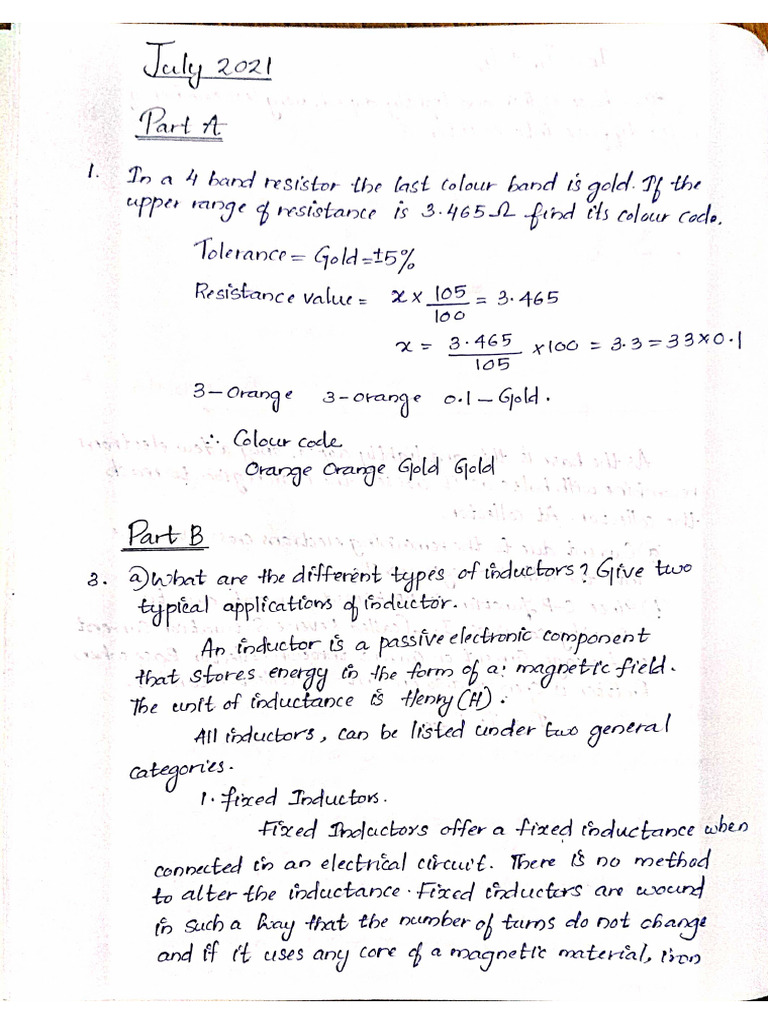 July 2021
Part A
1. In a 4 band resistor the last colour band is gold. If the
upper range of resistance is 3.465Ω find its colour code.
Tolerance = Gold = ±5%
Resistance value = x × 105/100 = 3.465
x = 3.465/105 × 100 = 3.3 = 33×0.1
3-Orange 3-orange 0.1-Gold.
∴ Colour code
Orange Orange Gold Gold
Part B
3. a) What are the different types of inductors? Give two
typical applications of inductor.
An inductor is a passive electronic component
that stores energy in the form of a magnetic field.
The unit of inductance is Henry (H).
All inductors, can be listed under two general
categories.
1. fixed Inductors.
Fixed Inductors offer a fixed inductance when
connected in an electrical circuit. There is no method
to alter the inductance. Fixed inductors are wound
in such a way that the number of turns do not change
and if it uses any core of a magnetic material, iron